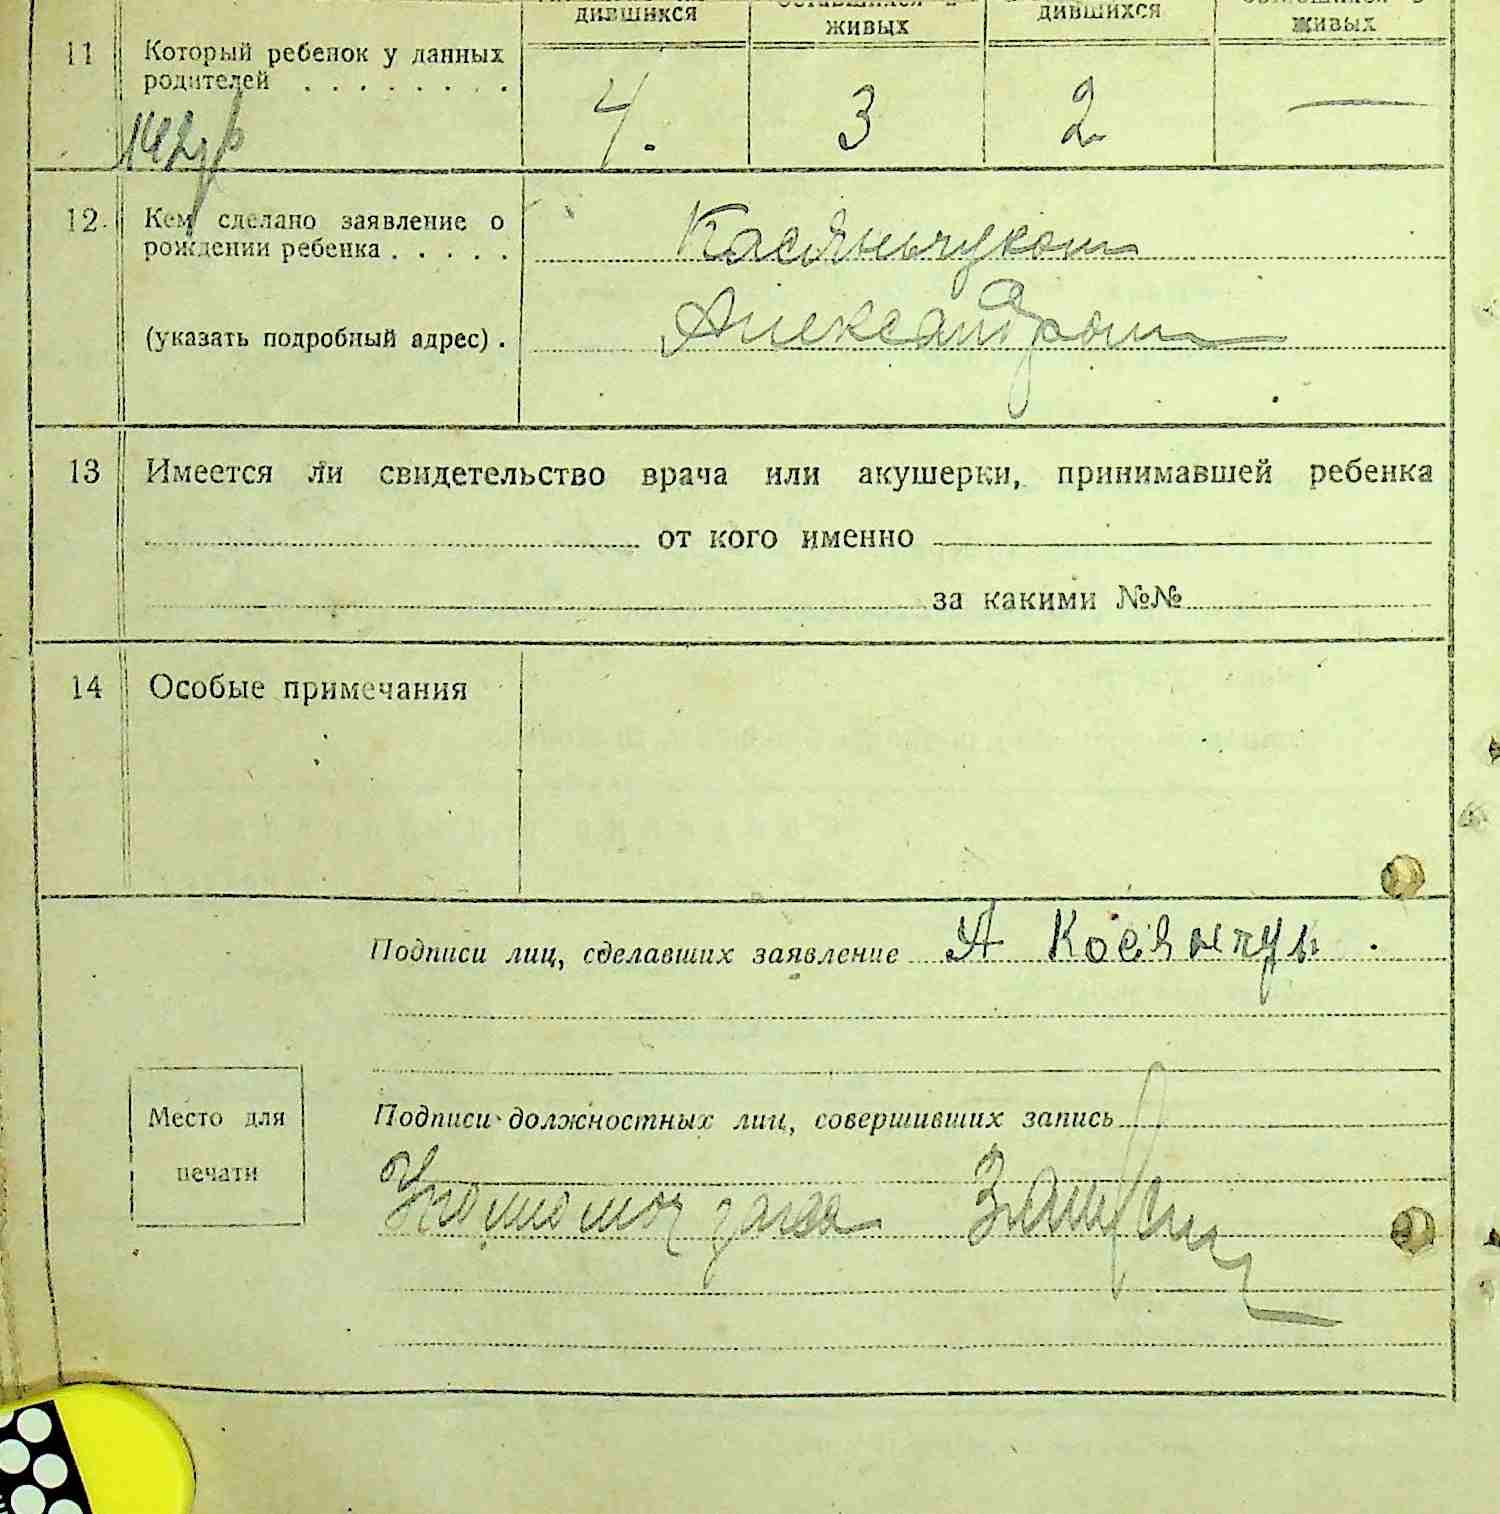 дившихся
живых
дившихся
живых
11 Который ребенок у данных
родителей . . . . . . . .
4. 3 2 —
12 Кем сделано заявление о
рождении ребенка . . . . .
Касьянчуком
(указать подробный адрес) .
Александром
13 Имеется ли свидетельство врача или акушерки, принимавшей ребенка
от кого именно
за какими №№
14 Особые примечания
Подписи лиц, сделавших заявление А Косянчук
Место для
печати
Подписи должностных лиц, совершивших запись